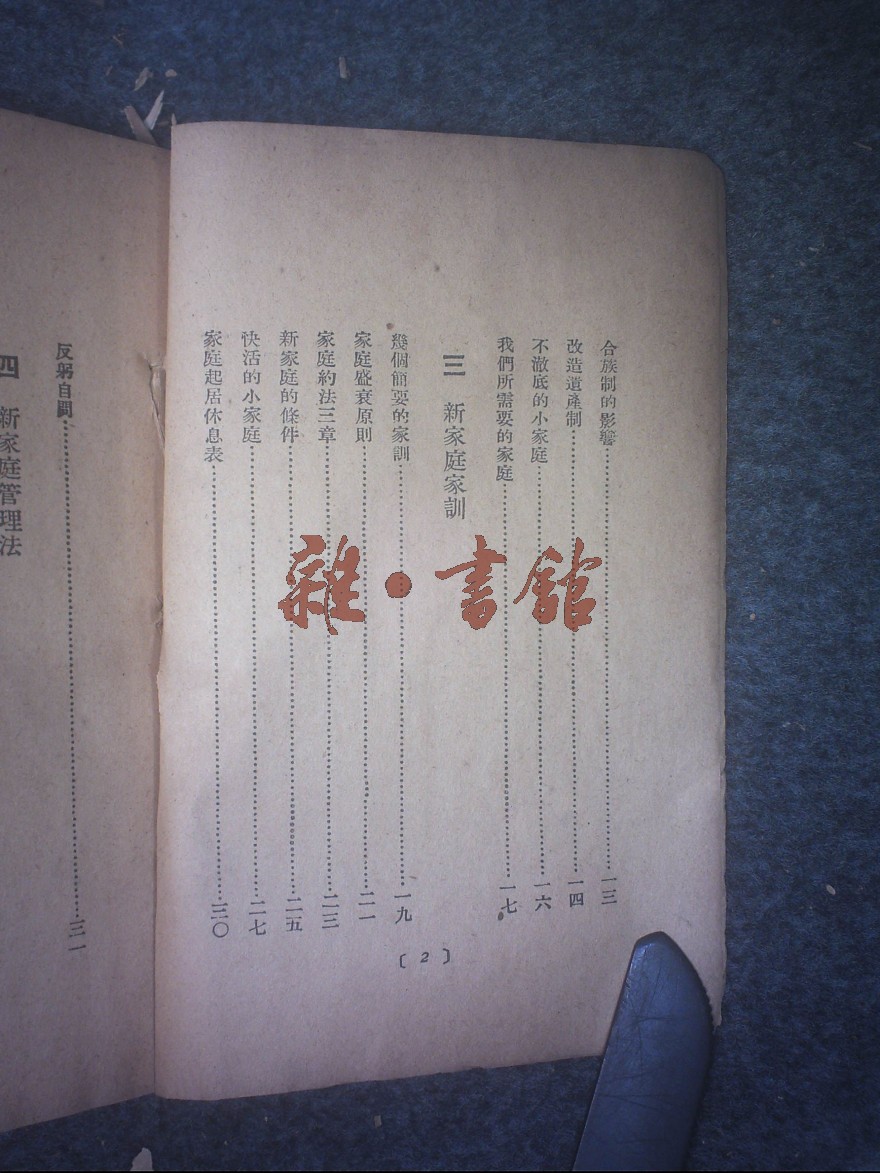 合族制的影響……一三
改造遺產制……一四
不澈底的小家庭……一六
我們所需要的家庭……一七
三 新家庭家訓
幾個簡要的家訓……一九
家庭盛衰原則……二一
家庭約法三章……二三
新家庭的條件……二五
快活的小家庭……二七
家庭起居休息表……三〇
〔2〕
反躬自問……三一
四 新家庭管理法
雜·書館